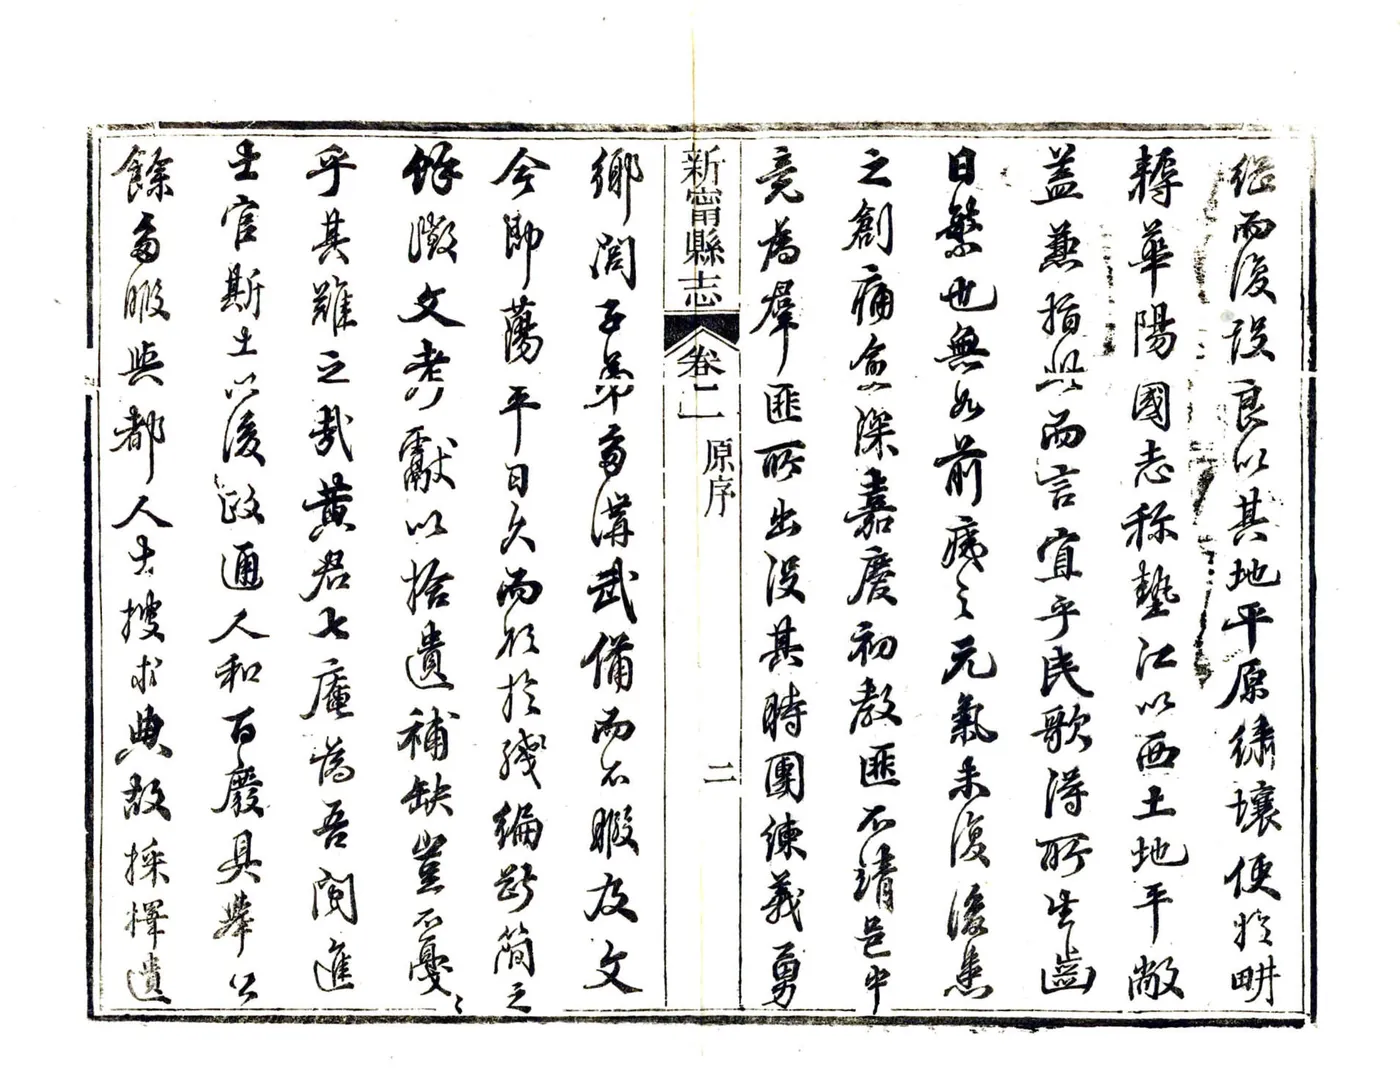 繼而復設良以其地平原繡壤便於畊
耨華陽國志称墊江以西土地平敞
蓋兼指此而言宜乎民歌得所生齒
日繁也無如前痍之元氣未復後患
之創痛愈深嘉慶初教匪不靖邑中
竟為群匪所出没其時團練義勇
新甯縣志
卷二
原序
二
鄉閭子弟多講武備而不暇及文
今即蕩平日久而欲於殘編斷簡之
餘徵文考獻以拾遺補缺豈不戛戛
乎其難之哉黃君七庵為吾閩進
士官斯土以後政通人和百廢具舉公
餘多暇與都人士搜求典故採擇遺